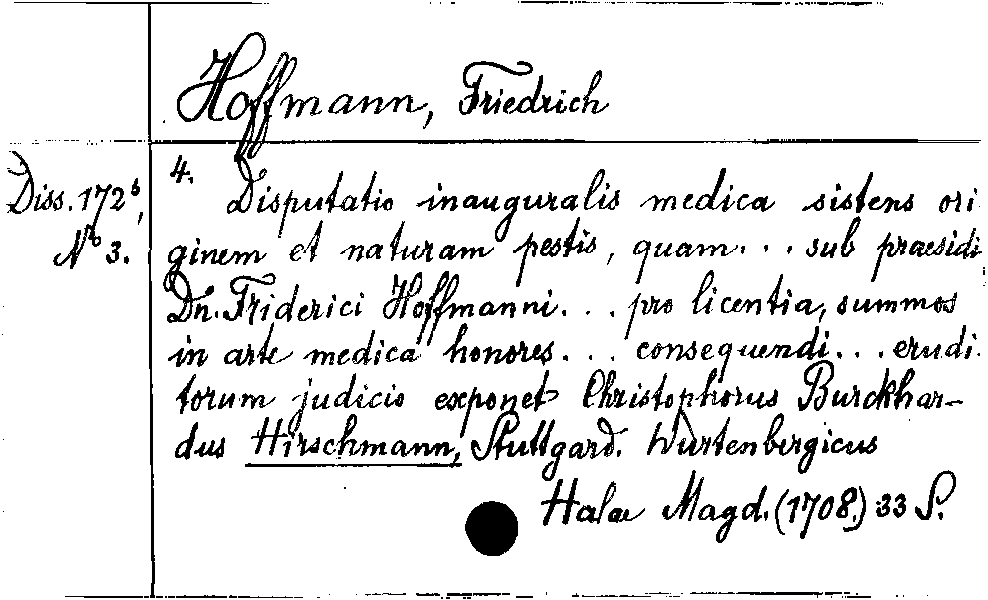 Hoffmann, Friedrich
Diss. 172⁶,
Nº 3.
4.
Disputatio inauguralis medica sistens ori
ginem et naturam pestis, quam... sub praesidi
Dn. Friderici Hoffmanni... pro licentia, summos
in arte medica honores... consequendi... erudi
torum judicio exponet Christophorus Burckhar-
dus Hirschmann, Stuttgard. Wurtenbergicus
Halae Magd. (1708.) 33 S.